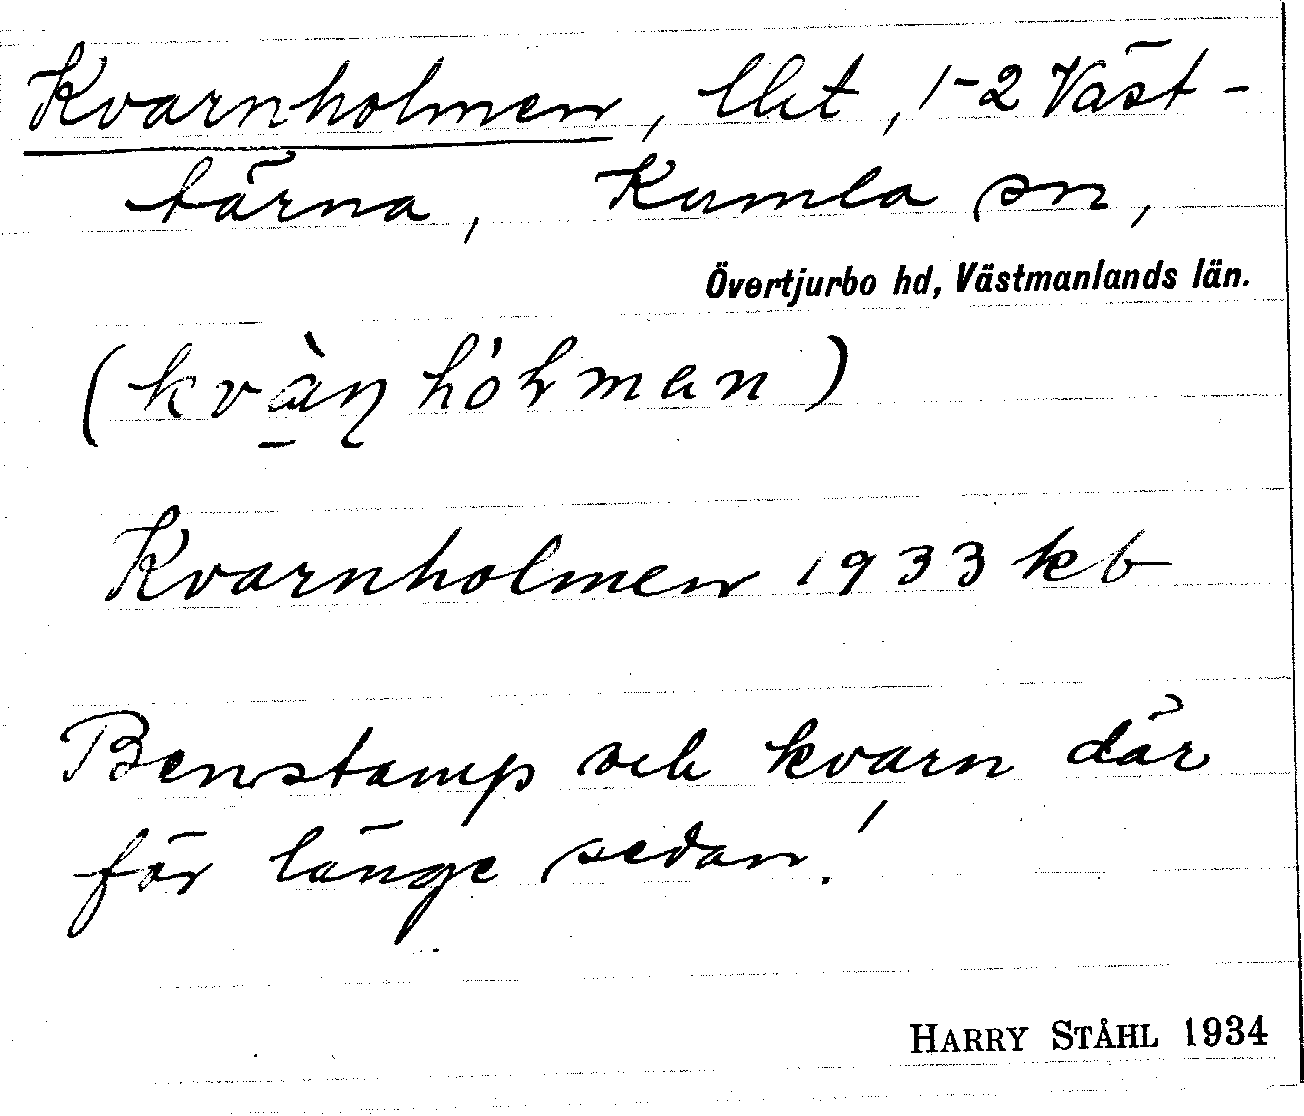 Kvarnholmen, lht, 1-2 Väst-
tärna, Kumla sn,
Övertjurbo hd, Västmanlands län.
(kvàɳ hólman)
Kvarnholmen 1933 kb
Benstamp och kvarn där
för länge sedan!
HARRY STÅHL 1934